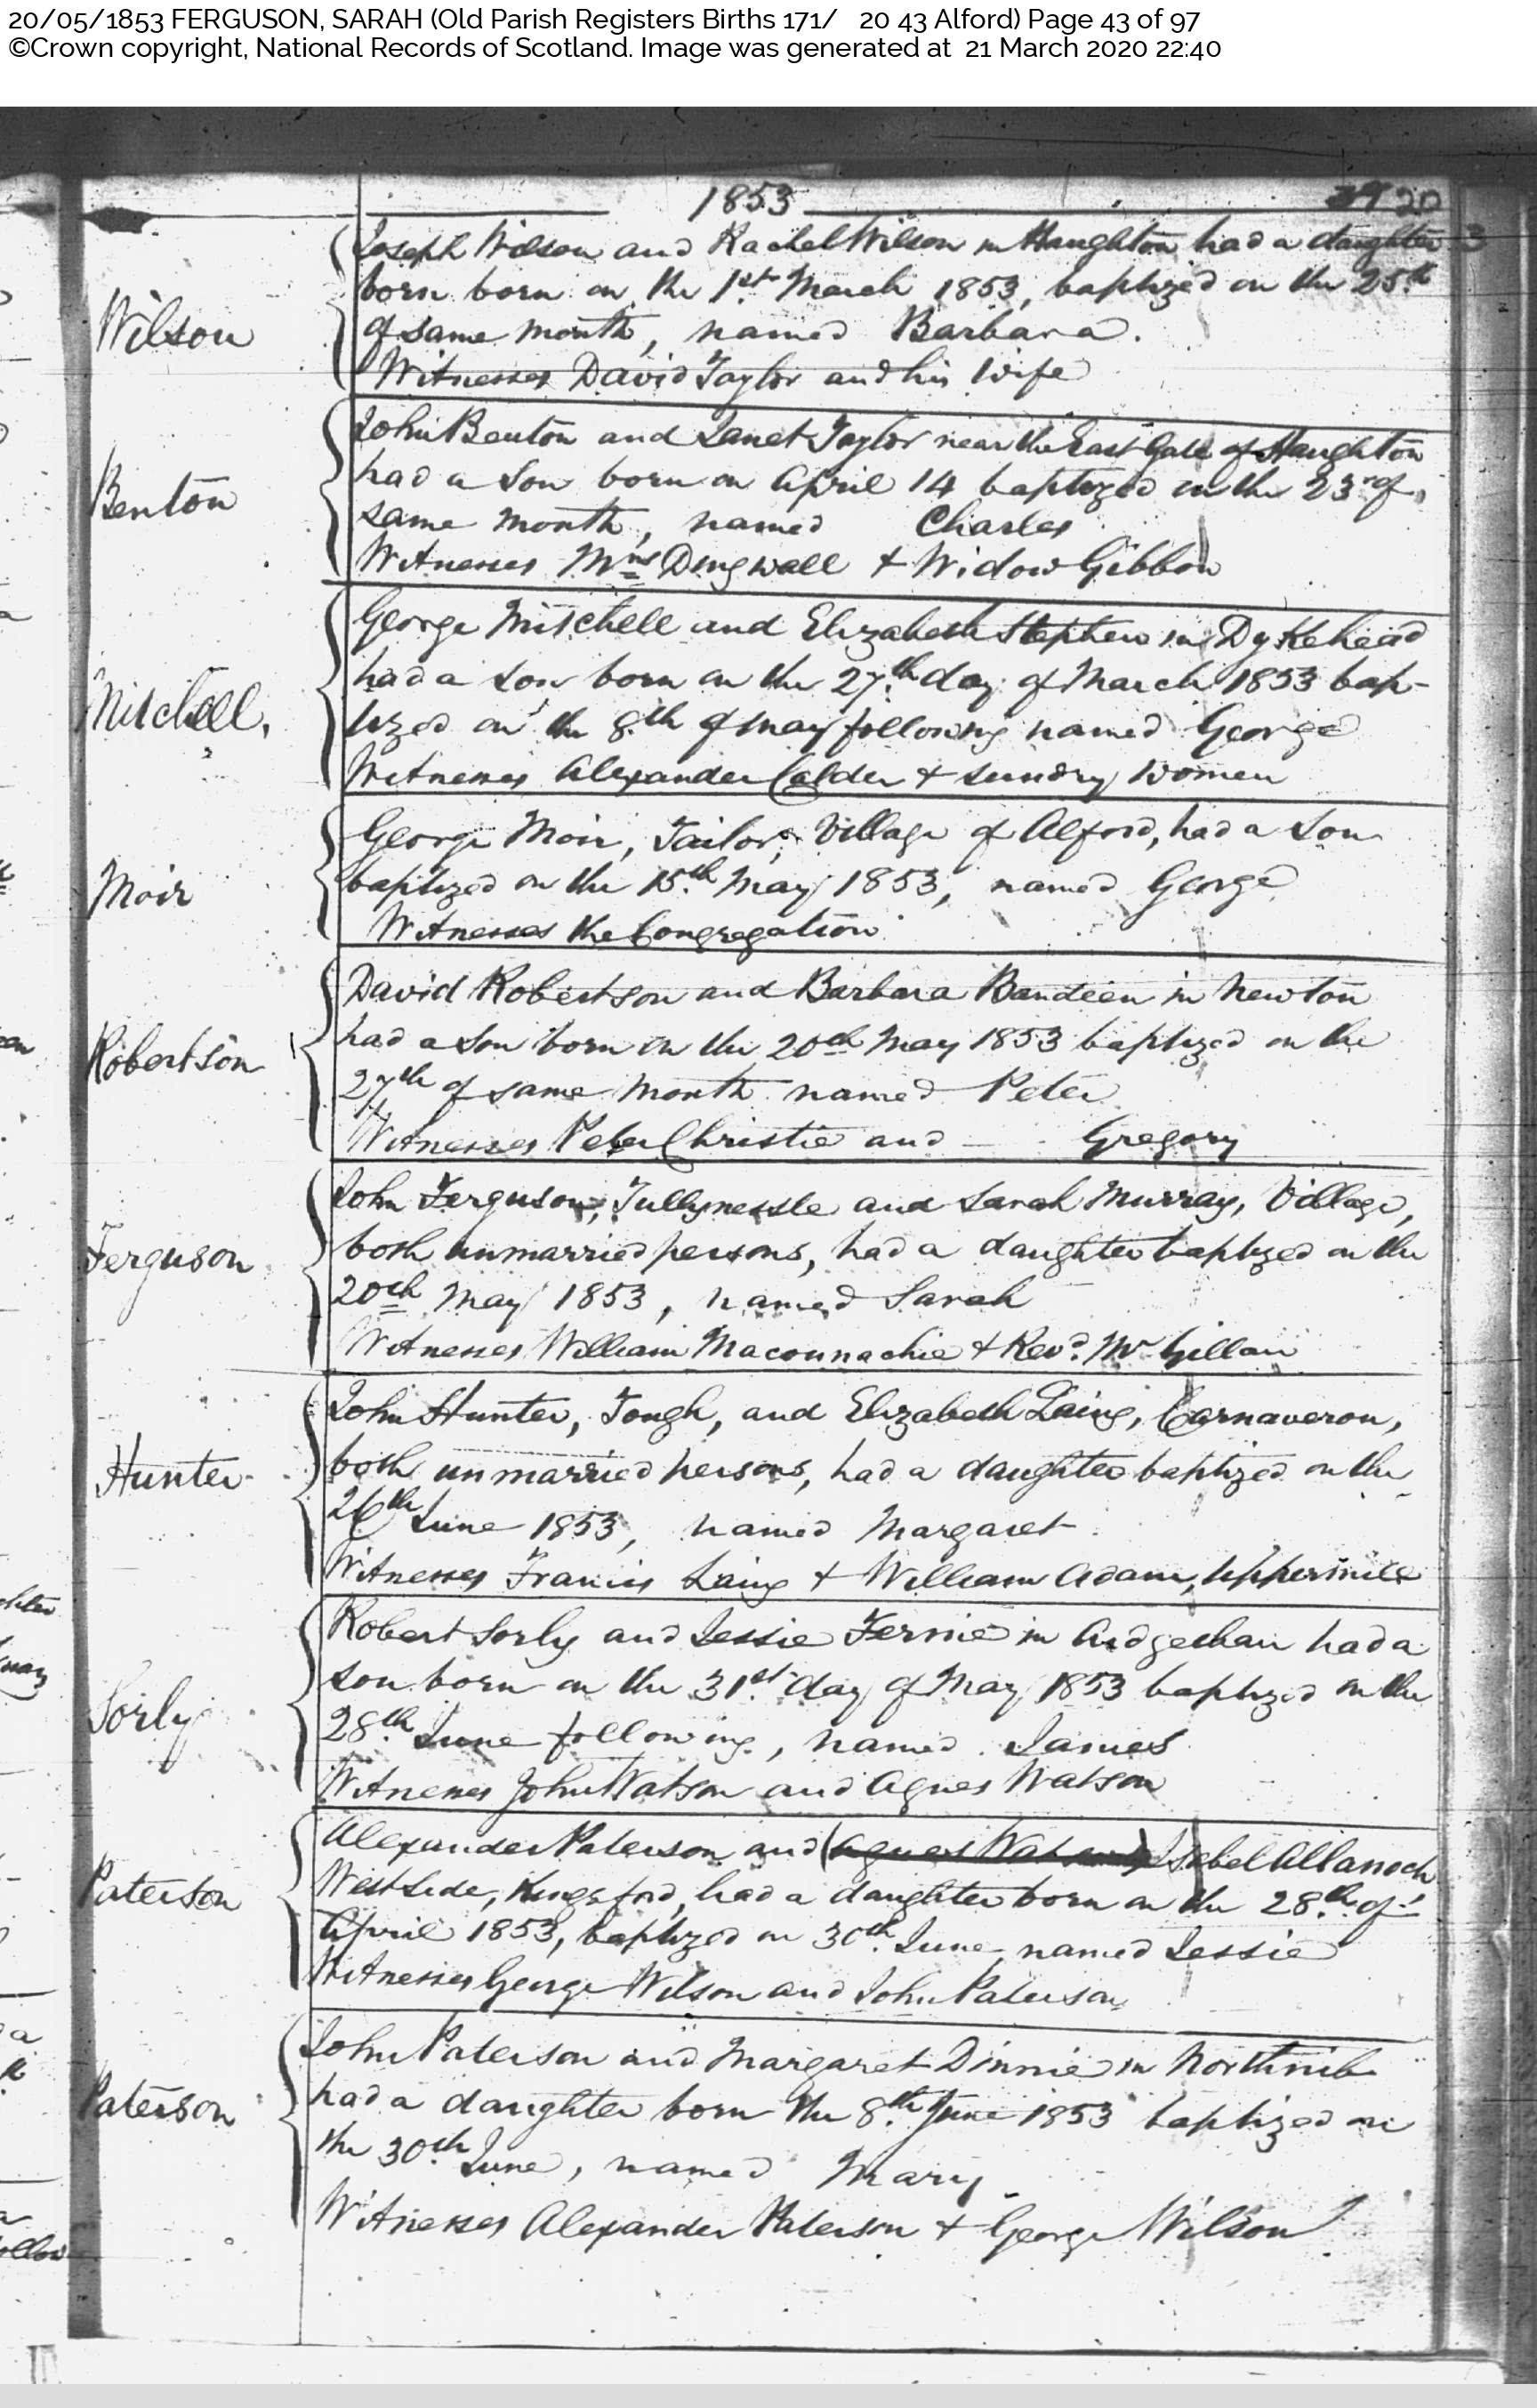 20/05/1853 FERGUSON, SARAH (Old Parish Registers Births 171/ 20 43 Alford) Page 43 of 97
©Crown copyright, National Records of Scotland. Image was generated at 21 March 2020 22:40
1853
39 20
Wilson
Joseph Wilson and Rachel Wilson in Haughton had a daughter
born born on the 1st March 1853, baptized on the 25th
of same month, named Barbara.
Witnesses David Taylor and his Wife
Benton
John Benton and Janet Taylor near the East Gate of Haughton
had a Son born on April 14 baptized on the 23rd of
same month, named Charles
Witnesses Mrs Dingwall + Widow Gibbon
Mitchell.
George Mitchell and Elizabeth Stephen in Dykehead
had a Son born on the 27th day of March 1853 bap-
tized on the 8th of May following named George
Witnesses Alexander Calder + sundry Women
Moir
George Moir, Tailor, Village of Alford, had a Son
baptized on the 15th May 1853, named George
Witnesses the Congregation
Robertson
David Robertson and Barbara Bandeen in Newton
had a Son born on the 20th May 1853 baptized on the
27th of same month named Peter
Witnesses Peter Christie and — Gregory
Ferguson
John Ferguson, Tullynessle and Sarah Murray, Village,
both unmarried persons, had a daughter baptized on the
20th May 1853, named Sarah
Witnesses William Maconnachie + Revd. Mr Gillan
Hunter
John Hunter, Tough, and Elizabeth Laing, Carnaveron,
both unmarried persons, had a daughter baptized on the
26th June 1853, named Margaret
Witnesses Francis Laing + William Adam, Uppermill
Sorly
Robert Sorly and Jessie Fernie in had a
son born on the 31st day of May 1853 baptized on the
28th June following, named James
Witnesses John Watson and Agnes Watson
Paterson
Alexander Paterson and (Agnes Watson) Isabel Allanoch
Westside, Kingsford, had a daughter born on the 28th of
April 1853, baptized on 30th June, named Jessie
Witnesses George Wilson and John Paterson
Paterson
John Paterson and Margaret Dinnie in
had a daughter born the 8th June 1853 baptized on
the 30th June, named Mary
Witnesses Alexander Paterson + George Wilson